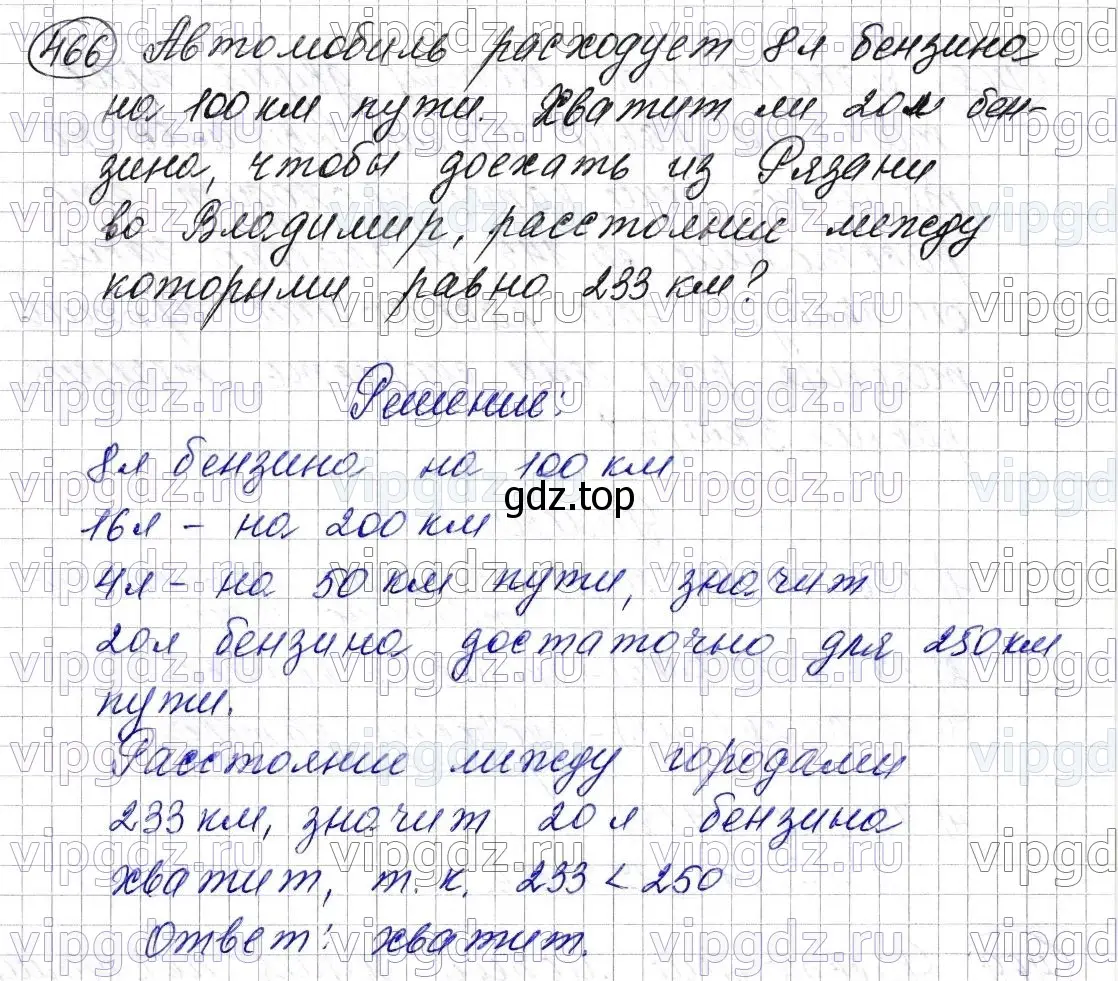 466 Автомобиль расходует 8л бензина
на 100 км пути. Хватит ли 20л бен-
зина, чтобы доехать из Рязани
во Владимир, расстояние между
которыми равно 233 км?
Решение:
8л бензина на 100 км
gdz.top
16л – на 200 км
4л – на 50 км пути, значит
20л бензина достаточно для 250км
пути.
Расстояние между городами
233 км, значит 20 л бензина
хватит, т. к. 233 < 250
Ответ: хватит.